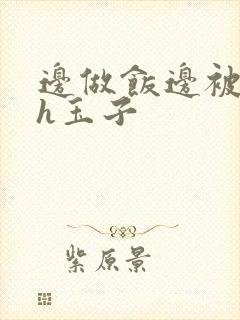 邊做飯邊被
h玉子
紫原景